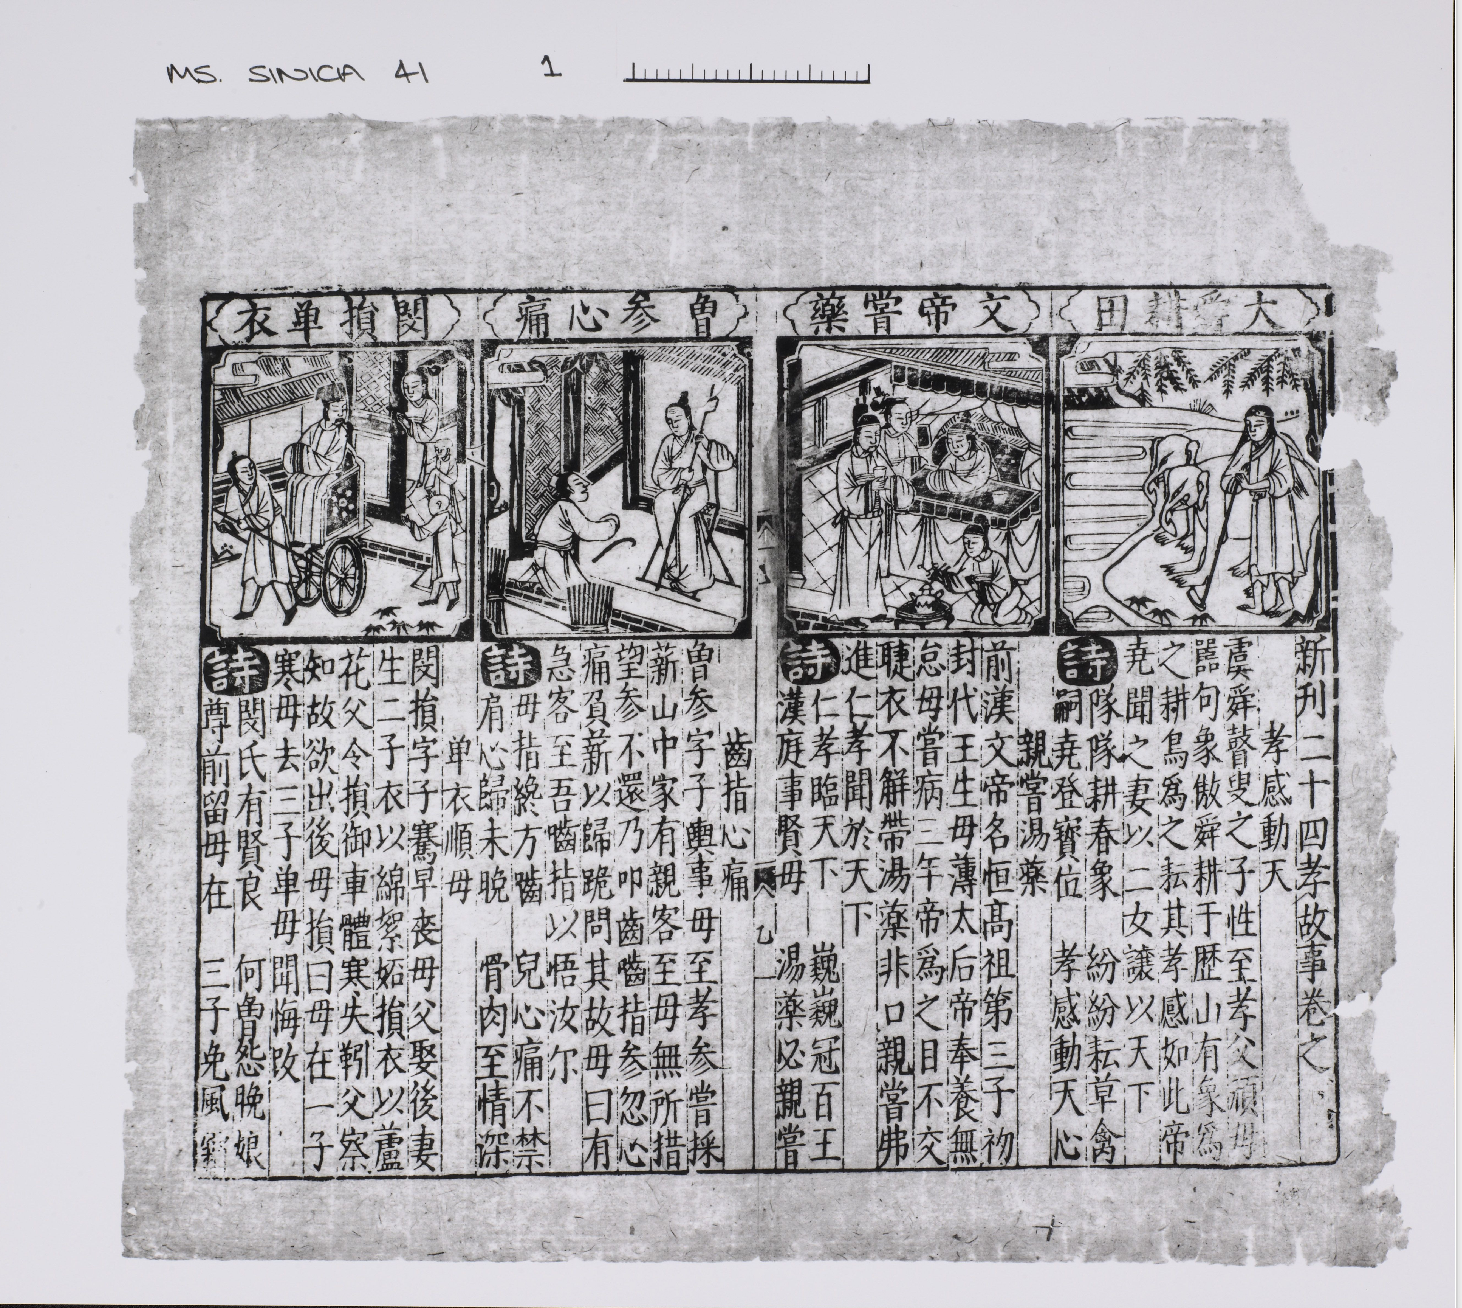 MS. SINICA 41
1
大舜耕田
文帝嘗藥
曾参心痛
閔損单衣
新刊二十四孝故事卷之
孝感動天
虞舜瞽叟之子性至孝父頑母
嚚句象傲舜耕于歷山有象爲
之耕鳥爲之耘其孝感如此帝
堯聞之妻以二女讓以天下
詩
隊隊耕春象 紛紛耘草禽
嗣堯登寳位 孝感動天心
親嘗湯藥
前漢文帝名恒高祖第三子初
封代王生母薄太后帝奉養無
怠母嘗病三年帝爲之目不交
睫衣不解帶湯藥非口親嘗弗
進仁孝聞於天下
詩
仁孝臨天下 巍巍冠百王
漢庭事賢母 湯藥必親嘗
乙
齒指心痛
曾参字子輿事母至孝参嘗採
薪山中家有親客至母無所措
望参不還乃叩齒嚙指参忽心
痛負薪以歸跪問其故母曰有
急客至吾嚙指以悟汝尔
詩
母指纔方嚙 兒心痛不禁
肩心歸未晚 骨肉至情深
单衣順母
閔損字子騫早丧母父娶後妻
生二子衣以綿絮妬損衣以蘆
花父令損御車體寒失靷父察
知故欲出後母損曰母在一子
寒母去三子单母聞悔改
詩
閔氏有賢良 何曾怨晚娘
尊前留母在 三子免風